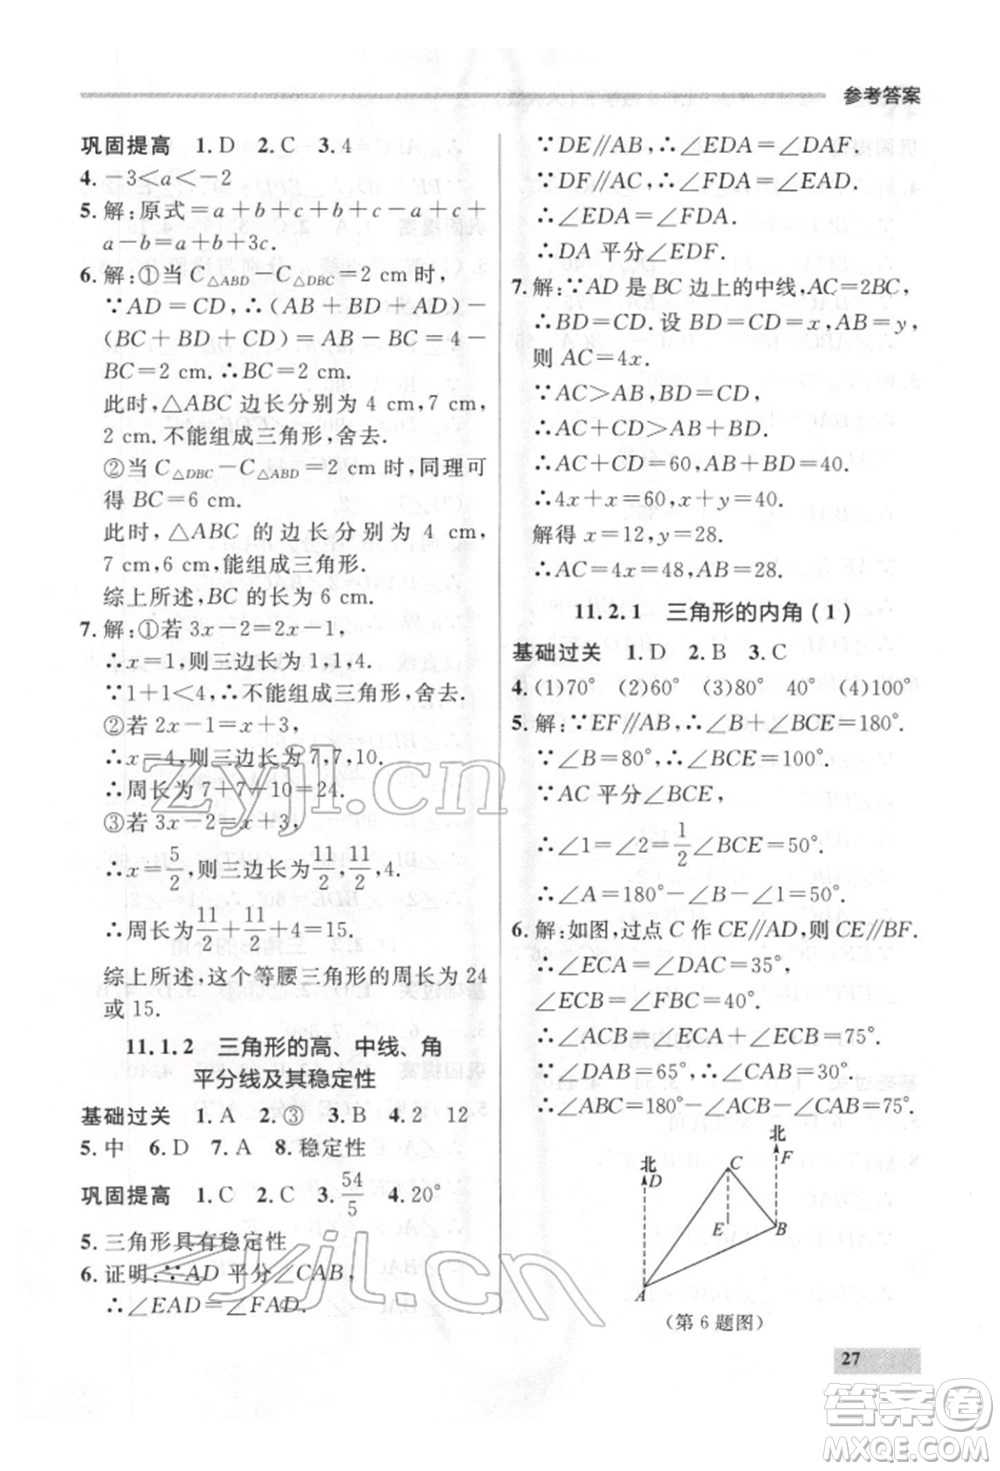 参考答案
巩固提高 1.D 2.C 3.4
4.-3<a<-2
5.解：原式=a+b+c+b-c-a+c+
a-b=a+b+3c.
6.解：①当 C△ABD-C△DBC=2 cm时，
∵AD=CD，∴(AB+BD+AD)-
(BC+BD+CD)=AB-BC=4-
BC=2 cm.∴BC=2 cm.
此时，△ABC 边长分别为 4 cm，7 cm，
2 cm.不能组成三角形，舍去.
②当C△DBC-C△ABD=2 cm时，同理可
得 BC=6 cm.
此时，△ABC 的边长分别为 4 cm，
7 cm，6 cm，能组成三角形.
综上所述，BC的长为 6 cm.
7.解：①若 3x-2=2x-1，
∴x=1，则三边长为 1，1，4.
∵1+1<4，∴不能组成三角形，舍去.
②若 2x-1=x+3，
∴x=4，则三边长为 7，7，10.
∴周长为 7+7+10=24.
③若 3x-2=x+3，
∴x=5/2，则三边长为 11/2，11/2，4.
∴周长为 11/2+11/2+4=15.
综上所述，这个等腰三角形的周长为 24
或 15.
11.1.2 三角形的高、中线、角
平分线及其稳定性
基础过关 1.A 2.③ 3.B 4.2 12
5.中 6.D 7.A 8.稳定性
巩固提高 1.C 2.C 3.54/5 4.20°
5.三角形具有稳定性
6.证明：∵AD 平分∠CAB，
∴∠EAD=∠FAD.
∵DE∥AB，∴∠EDA=∠DAF.
∵DF∥AC，∴∠EAD=∠FDA.
∴∠EDA=∠FDA.
∴DA 平分∠EDF.
7.解：∵AD 是 BC 边上的中线，AC=2BC，
∴BD=CD.设 BD=CD=x，AB=y，
则 AC=4x.
∵AC>AB，BD=CD，
∴AC+CD>AB+BD.
∴AC+CD=60，AB+BD=40.
∴4x+x=60，x+y=40.
解得 x=12，y=28.
∴AC=4x=48，AB=28.
11.2.1 三角形的内角(1)
基础过关 1.D 2.B 3.C
4.(1)70° (2)60° (3)80° 40° (4)100°
5.解：∵EF∥AB，∴∠B+∠BCE=180°.
∵∠B=80°，∴∠BCE=100°.
∵AC 平分∠BCE，
∴∠1=∠2=1/2∠BCE=50°.
∴∠A=180°-∠B-∠1=50°.
6.解：如图，过点 C 作 CE∥AD，则 CE∥BF.
∴∠ECA=∠DAC=35°，
∠ECB=∠FBC=40°.
∴∠ACB=∠ECA+∠ECB=75°.
∵∠DAB=65°，∴∠CAB=30°.
∴∠ABC=180°-∠ACB-∠CAB=75°.
北
F
北
D
C
E
B
A
(第 6 题图)
27
zyjl.cn
zyjl.cn
答案圈
MXQE.COM